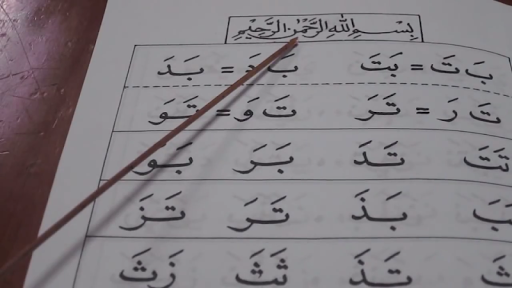 بِسْمِ اللهِ الرَّحْمٰنِ الرَّحِيْمِ
بَ تَ = بَتَ بَ دَ = بَدَ
تَ رَ = تَرَ تَ وَ = تَوَ
تَتَ تَدَ بَرَ بَوَ
بَبَ بَذَ تَرَ تَزَ
تَذَ ثَثَ زَثَ